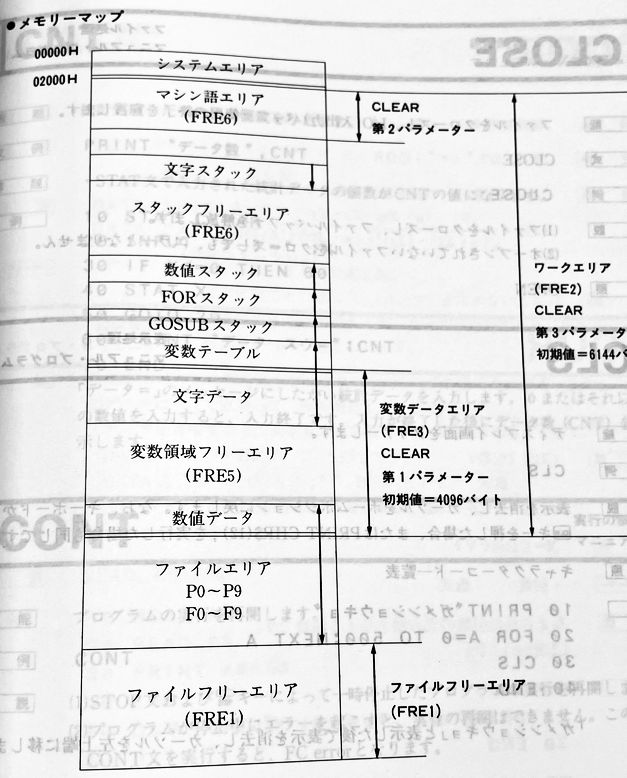 ●メモリーマップ
00000H
システムエリア
02000H
マシン語エリア
(FRE6)
CLEAR
第2パラメーター
文字スタック
スタックフリーエリア
(FRE6)
数値スタック
FORスタック
GOSUBスタック
変数テーブル
ワークエリア
(FRE2)
CLEAR
第3パラメータ
初期値=6144バ
文字データ
変数領域フリーエリア
(FRE5)
数値データ
変数データエリア
(FRE3)
CLEAR
第1パラメーター
初期値=4096バイト
ファイルエリア
P0～P9
F0～F9
ファイルフリーエリア
(FRE1)
ファイルフリーエリア
(FRE1)